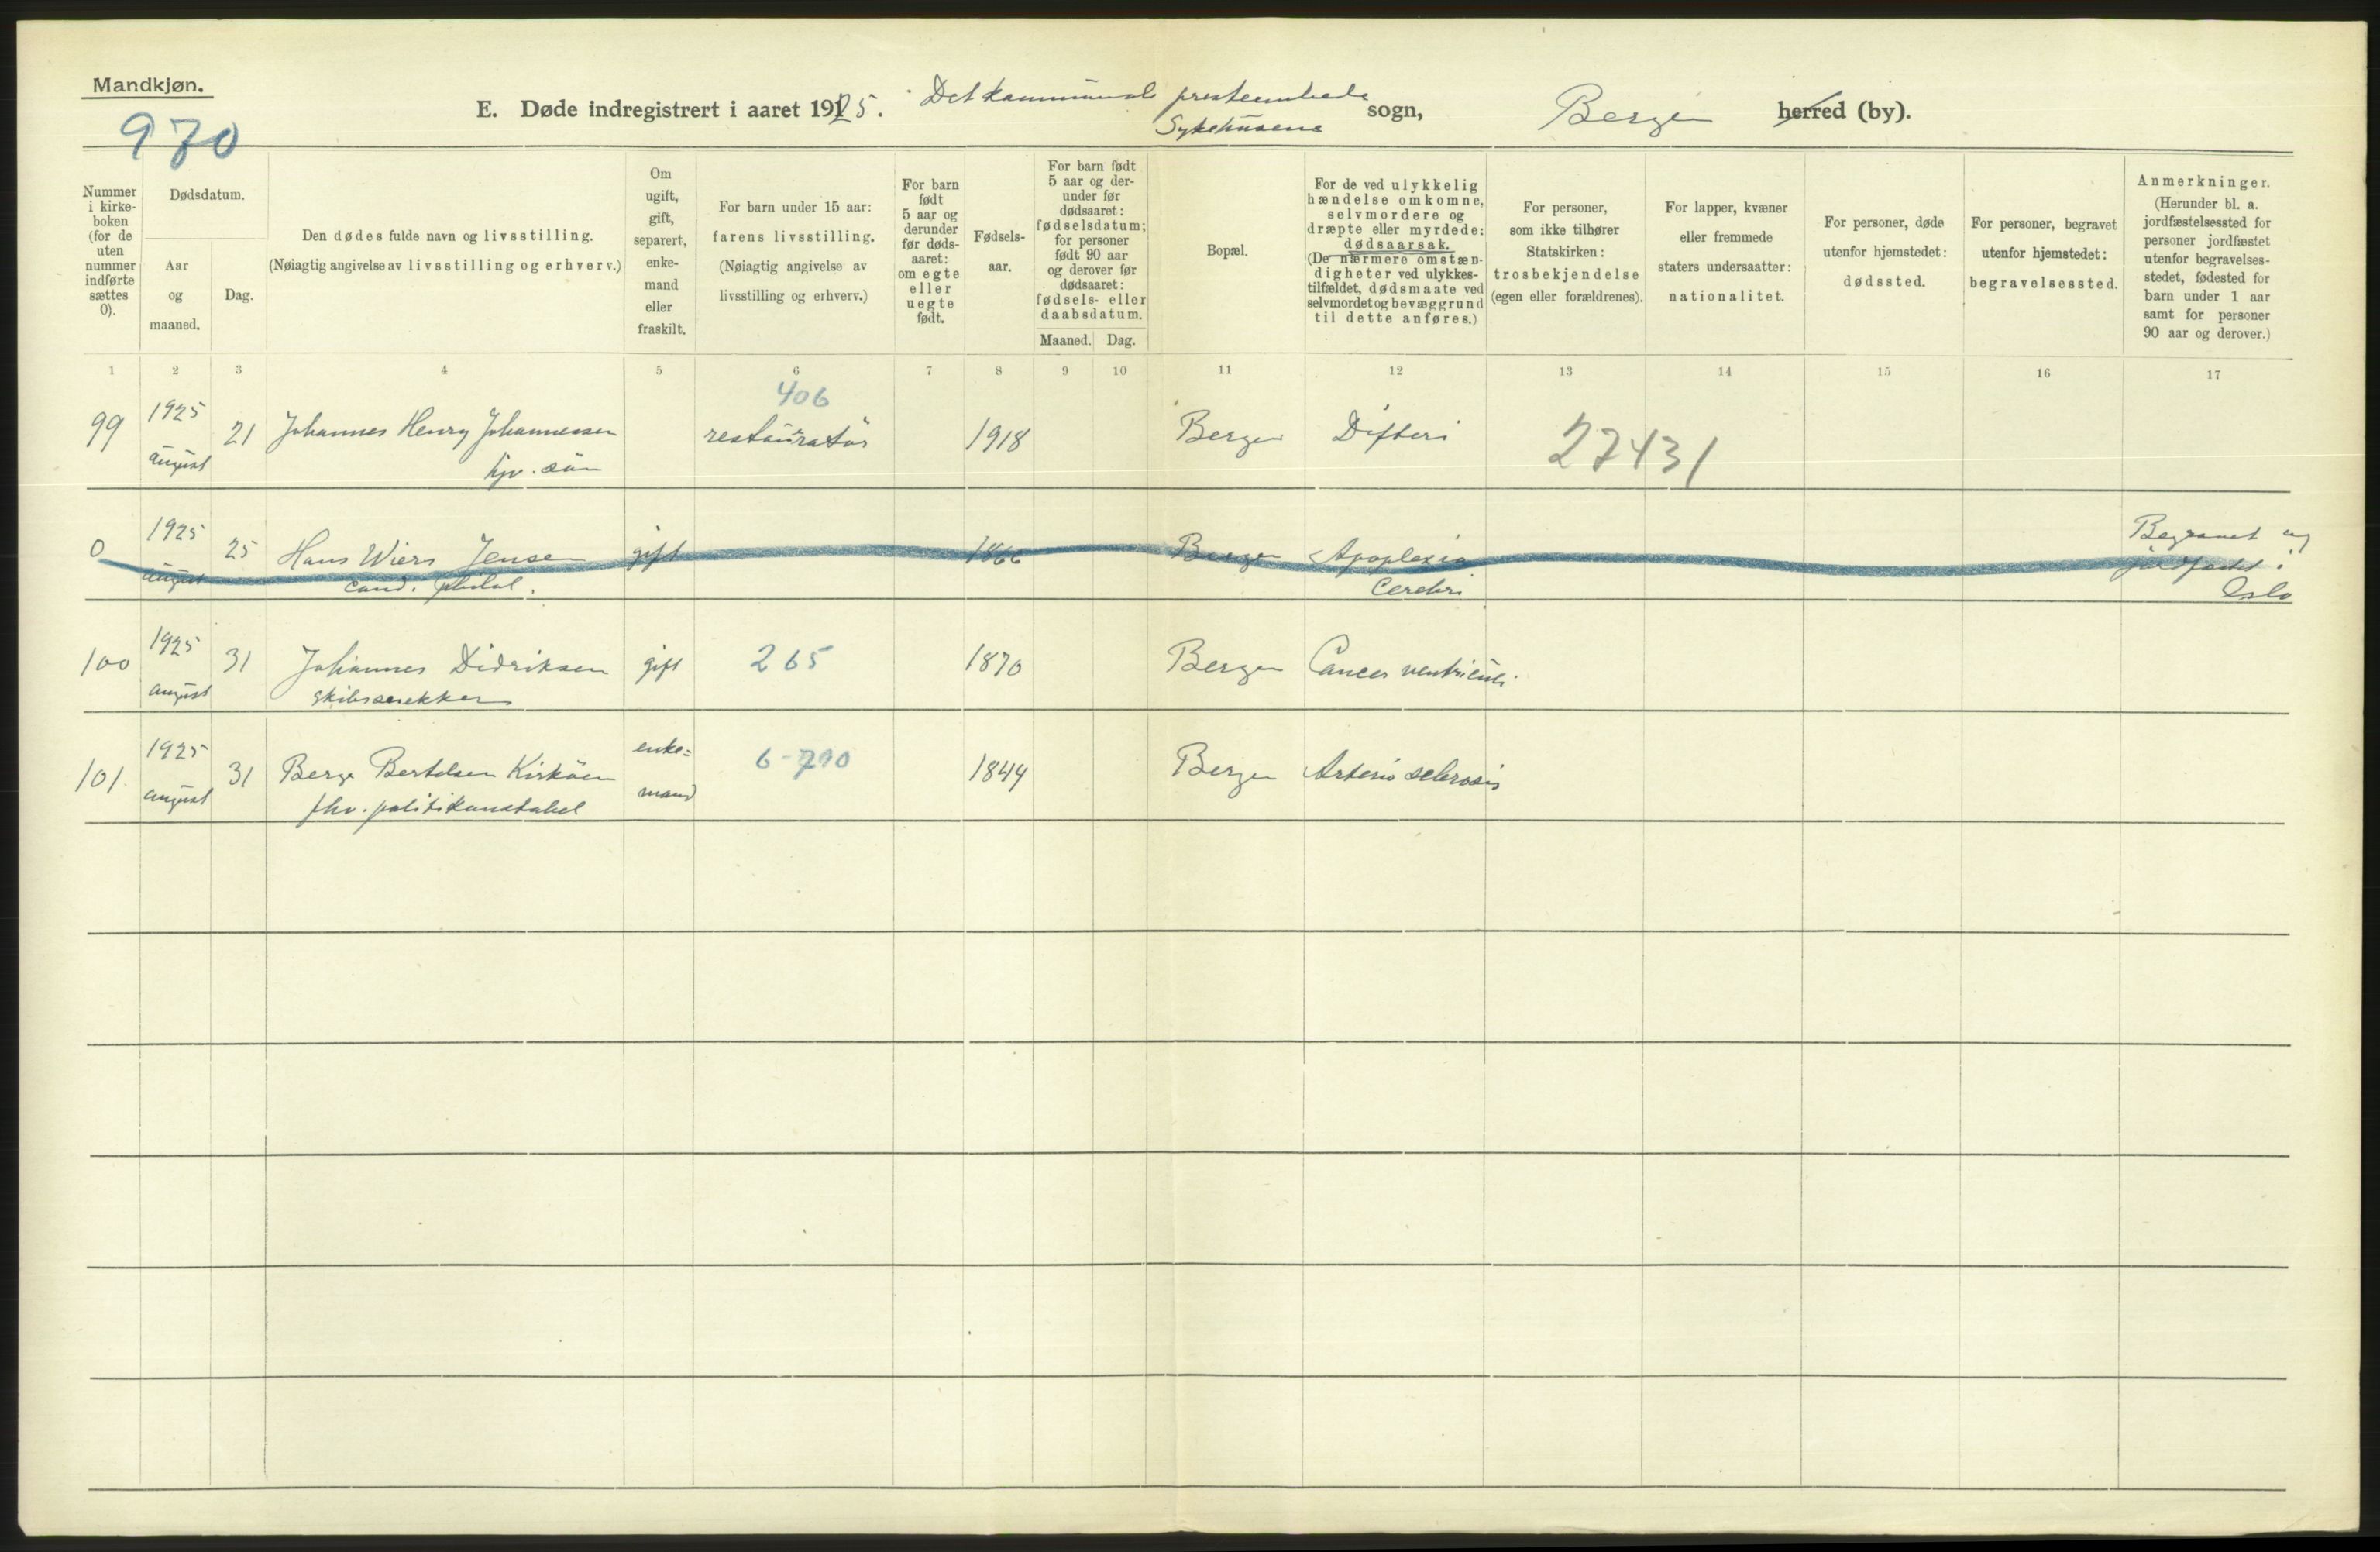 Mandkjøn.
970
E. Døde indregistrert i aaret 1925. Det kommunale presteembede sogn, Bergen herred (by).
Sykehusene
Nummer i kirke-boken (for de uten nummer indførte sættes 0).
Dødsdatum.
Aar og maaned.
Dag.
Den dødes fulde navn og livsstilling.
(Nøiagtig angivelse av livsstilling og erhverv.)
Om ugift, gift, separert, enke-mand eller fraskilt.
For barn under 15 aar:
farens livsstilling.
(Nøiagtig angivelse av
livsstilling og erhverv.)
For barn født 5 aar og derunder før døds-aaret: om egte eller uegte født.
Fødsels-aar.
For barn født 5 aar og der-under før dødsaaret: fødselsdatum; for personer født 90 aar og derover før dødsaaret: fødsels- eller daabsdatum.
Maaned. Dag.
Bopæl.
For de ved ulykkelig hændelse omkomne, selvmordere og dræpte eller myrdede: dødsaarsak.
(De nærmere omstæn-digheter ved ulykkes-tilfældet, dødsmaate ved selvmordet og bevæggrund til dette anføres.)
For personer, som ikke tilhører Statskirken: trosbekjendelse (egen eller forældrenes).
For lapper, kvæner eller fremmede staters undersaatter: nationalitet.
For personer, døde utenfor hjemstedet: dødssted.
For personer, begravet utenfor hjemstedet: begravelsessted.
Anmerkninger.
(Herunder bl. a. jordfæstelsessted for personer jordfæstet utenfor begravelses-stedet, fødested for barn under 1 aar samt for personer 90 aar og derover.)
1 2 3 4 5 6 7 8 9 10 11 12 13 14 15 16 17
406
99 1925 august 21 Johannes Henry Johannessen restauratør 1918 Bergen Difteri 27431
hjv. søn
0 1925 august 25 Hans Wiers Jensen gift 1866 Bergen Apoplexia Begravet og
cand. philol. Cerebri jordfæstet i
Oslo
100 1925 august 31 Johannes Didriksen gift 265 1870 Bergen Cancer ventriculi
101. 1925 august 31 Berge Bertelsen enke= mand 6-790 1849 Bergen Arterio sclerosis
fhv. politikonstabel